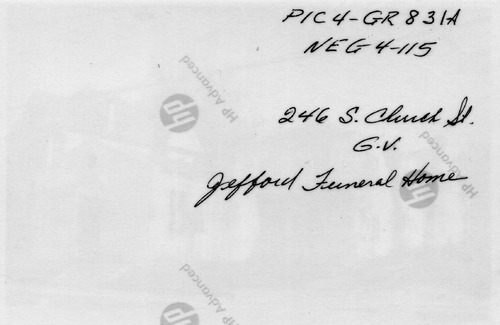 PIC 4-GR 831A
NEG 4-115
HP Advanced
246 S. Church St.
G.V.
HP Advanced
Jefford Funeral Home
HP Advanced